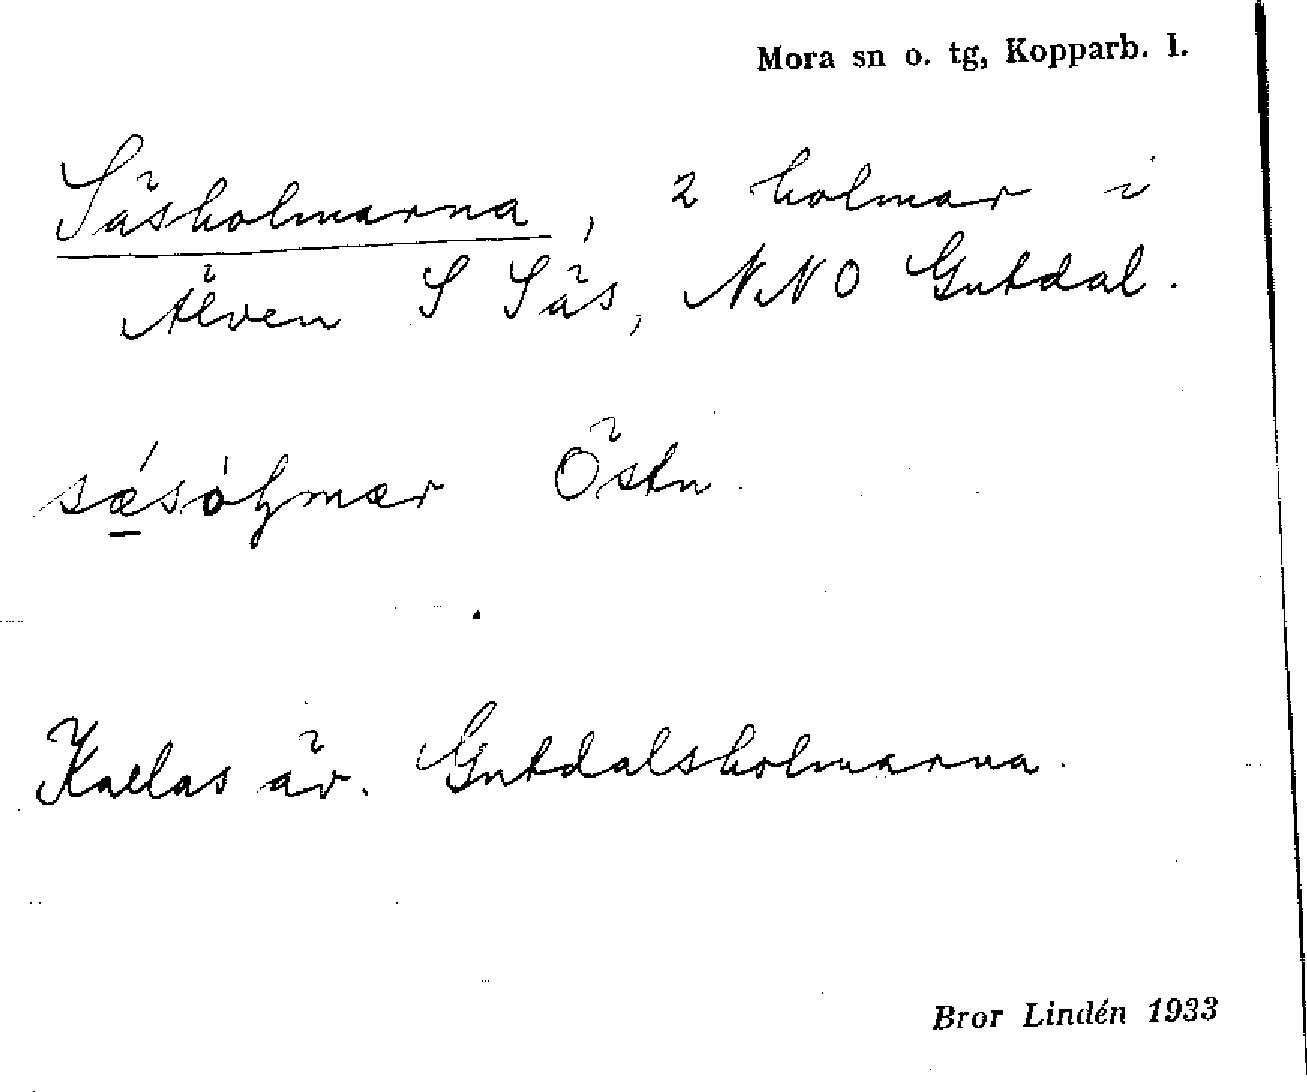 Mora sn o. tg, Kopparb. l.
Säsholmarna, 2 holmar i
Älven S Säs, NNO Gutdal.
Östn.
Kallas äv. Gutdalsholmarna.
Bror Lindén 1933